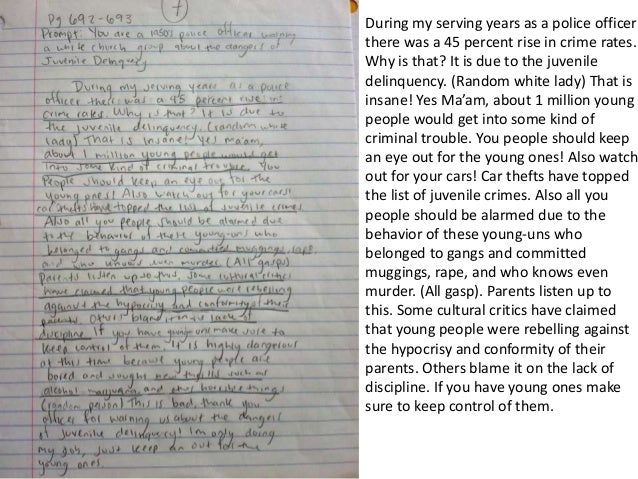 Pg 692-693
7
Prompt: You are a 1950's police officer warning
a white church group about the dangers of
Juvenile Delinquency
During my serving years as a police
officer there was a 45 percent rise in
crime rates. Why is that? It is due to
the juvenile delinquency. (random white
lady) That is insane! yes ma'am,
about 1 million young people would get
into some kind of criminal trouble. You
people should keep an eye out for the
young ones! Also watch out for your cars!
car thefts have topped the list of juvenile crimes.
Also all you people should be alarmed due
to the behavior of these young-uns who
belonged to gangs and committed muggings, rape,
and who knows even murder. (All gasps)
Parents listen up to this, some cultural critics
have claimed that young people were rebelling
against the hypocrisy and conformity of their
parents. Others blame it on the lack of
discipline. If you have young ones make sure to
keep control of them. It is highly dangerous
at this time because young people are
bored and sought new thrills such as
alcohol, marijuana and other horrible things
(random person) This is bad, thank you
officer for warning us about the dangers
of juvenile delinquency! I'm only doing
my job, just keep an out for the
young ones.
During my serving years as a police officer
there was a 45 percent rise in crime rates.
Why is that? It is due to the juvenile
delinquency. (Random white lady) That is
insane! Yes Ma'am, about 1 million young
people would get into some kind of
criminal trouble. You people should keep
an eye out for the young ones! Also watch
out for your cars! Car thefts have topped
the list of juvenile crimes. Also all you
people should be alarmed due to the
behavior of these young-uns who
belonged to gangs and committed
muggings, rape, and who knows even
murder. (All gasp). Parents listen up to
this. Some cultural critics have claimed
that young people were rebelling against
the hypocrisy and conformity of their
parents. Others blame it on the lack of
discipline. If you have young ones make
sure to keep control of them.